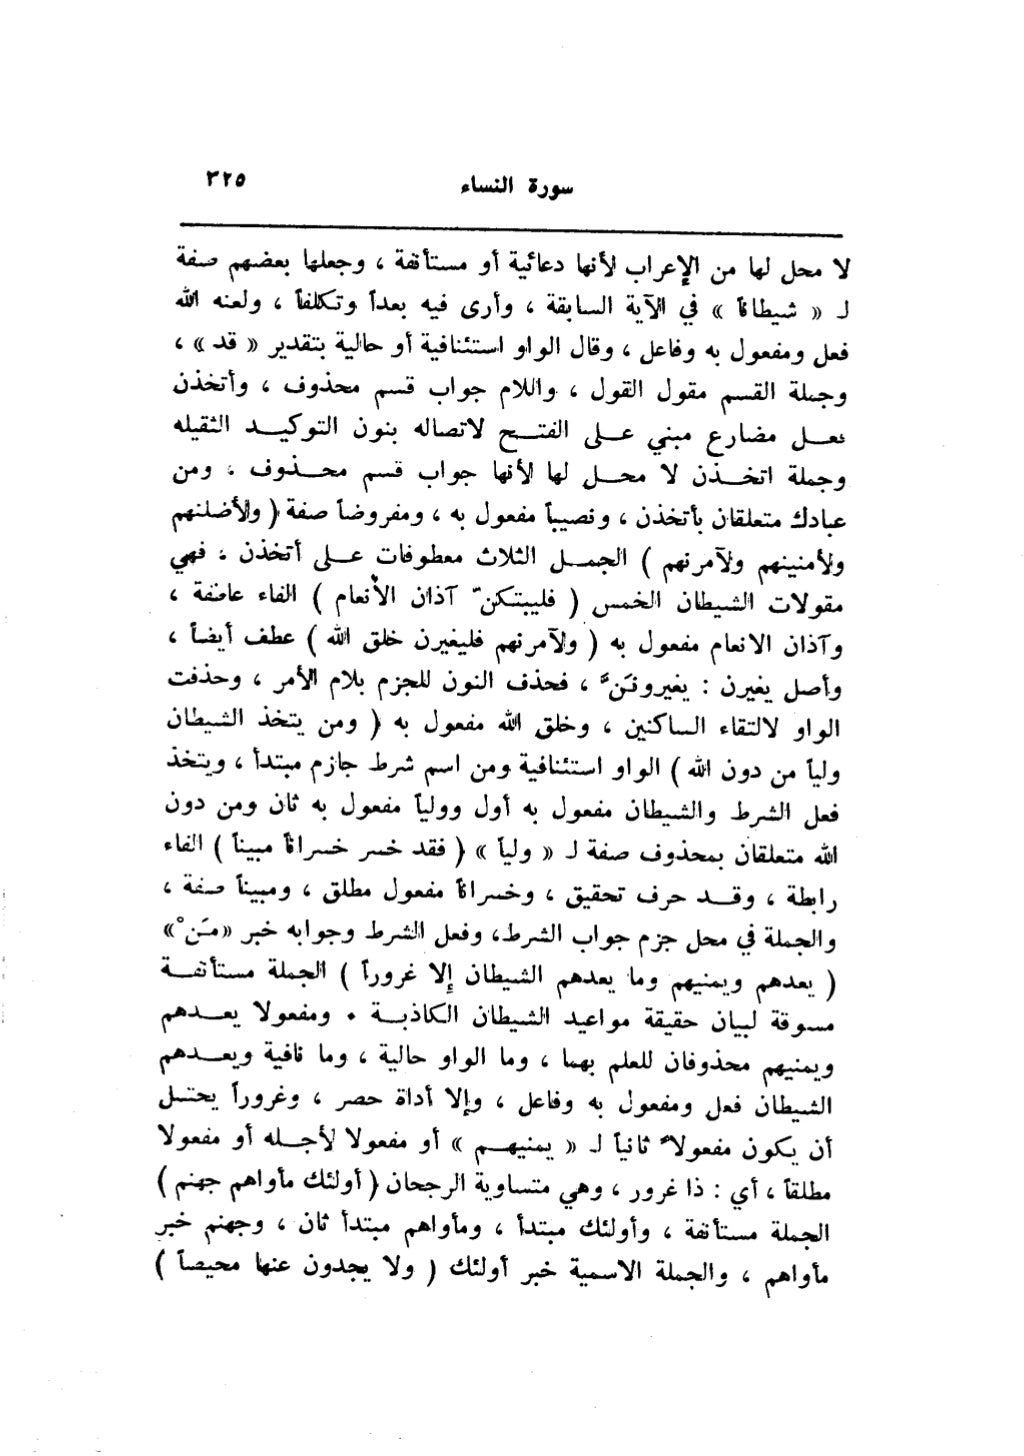 سورة النساء ٣٢٥
لا محل لها من الإعراب لأنها دعائية أو مستأنفة ، وجعلها بعضهم صفة
لـ « شيطاناً » في الآية السابقة ، وأرى فيه بعداً وتكلفاً ، ولعنه الله
فعل ومفعول به وفاعل ، وقال الواو استئنافية أو حالية بتقدير « قد » ،
وجملة القسم مقول القول ، واللام جواب قسم محذوف ، وأتخذن
فعـل مضارع مبني علـى الفتـح لاتصاله بنون التوكيـد الثقيله
وجملة اتخـذن لا محـل لها لأنها جواب قسم محـذوف ، ومن
عبادك متعلقان بأتخذن ، ونصيباً مفعول به ، ومفروضاً صفة ( ولأضلنهم
ولأمنينهم ولآمرنهم ) الجمـل الثلاث معطوفات علـى أتخذن ، فهي
مقولات الشيطان الخمس ( فليبتكنّ آذان الأنعام ) الفاء عاطفة ،
وآذان الانعام مفعول به ( ولآمرنهم فليغيرن خلق الله ) عطف أيضاً ،
وأصل يغيرن : يغيرونَنَّ ، فحذف النون للجزم بلام الأمر ، وحذفت
الواو لالتقاء الساكنين ، وخلق الله مفعول به ( ومن يتخذ الشيطان
ولياً من دون الله ) الواو استئنافية ومن اسم شرط جازم مبتدأ ، ويتخذ
فعل الشرط والشيطان مفعول به أول وولياً مفعول به ثان ومن دون
الله متعلقان بمحذوف صفة لـ « ولياً » ( فقد خسر خسراناً مبيناً ) الفاء
رابطة ، وقـد حرف تحقيق ، وخسراناً مفعول مطلق ، ومبيناً صفة ،
والجملة في محل جزم جواب الشرط، وفعل الشرط وجوابه خبر «مَـنْ»
( يعدهم ويمنيهم وما يعدهم الشيطان إلا غروراً ) الجملة مستأنفـة
مسوقة لبيان حقيقة مواعيد الشيطان الكاذبـة . ومفعولا يعـدهم
ويمنيهم محذوفان للعلم بهما ، وما الواو حالية ، وما نافية ويعـدهم
الشيطان فعل ومفعول به وفاعل ، وإلا أداة حصر ، وغروراً يحتمل
أن يكون مفعولاً ثانياً لـ « يمنيهـم » أو مفعولا لأجـله أو مفعولا
مطلقاً ، أي : ذا غرور ، وهي متساوية الرجحان ( أولئك مأواهم جهنم )
الجملة مستأنفة ، وأولئك مبتدأ ، ومأواهم مبتدأ ثان ، وجهنم خبر
مأواهم ، والجملة الاسمية خبر أولئك ( ولا يجدون عنها محيصاً )